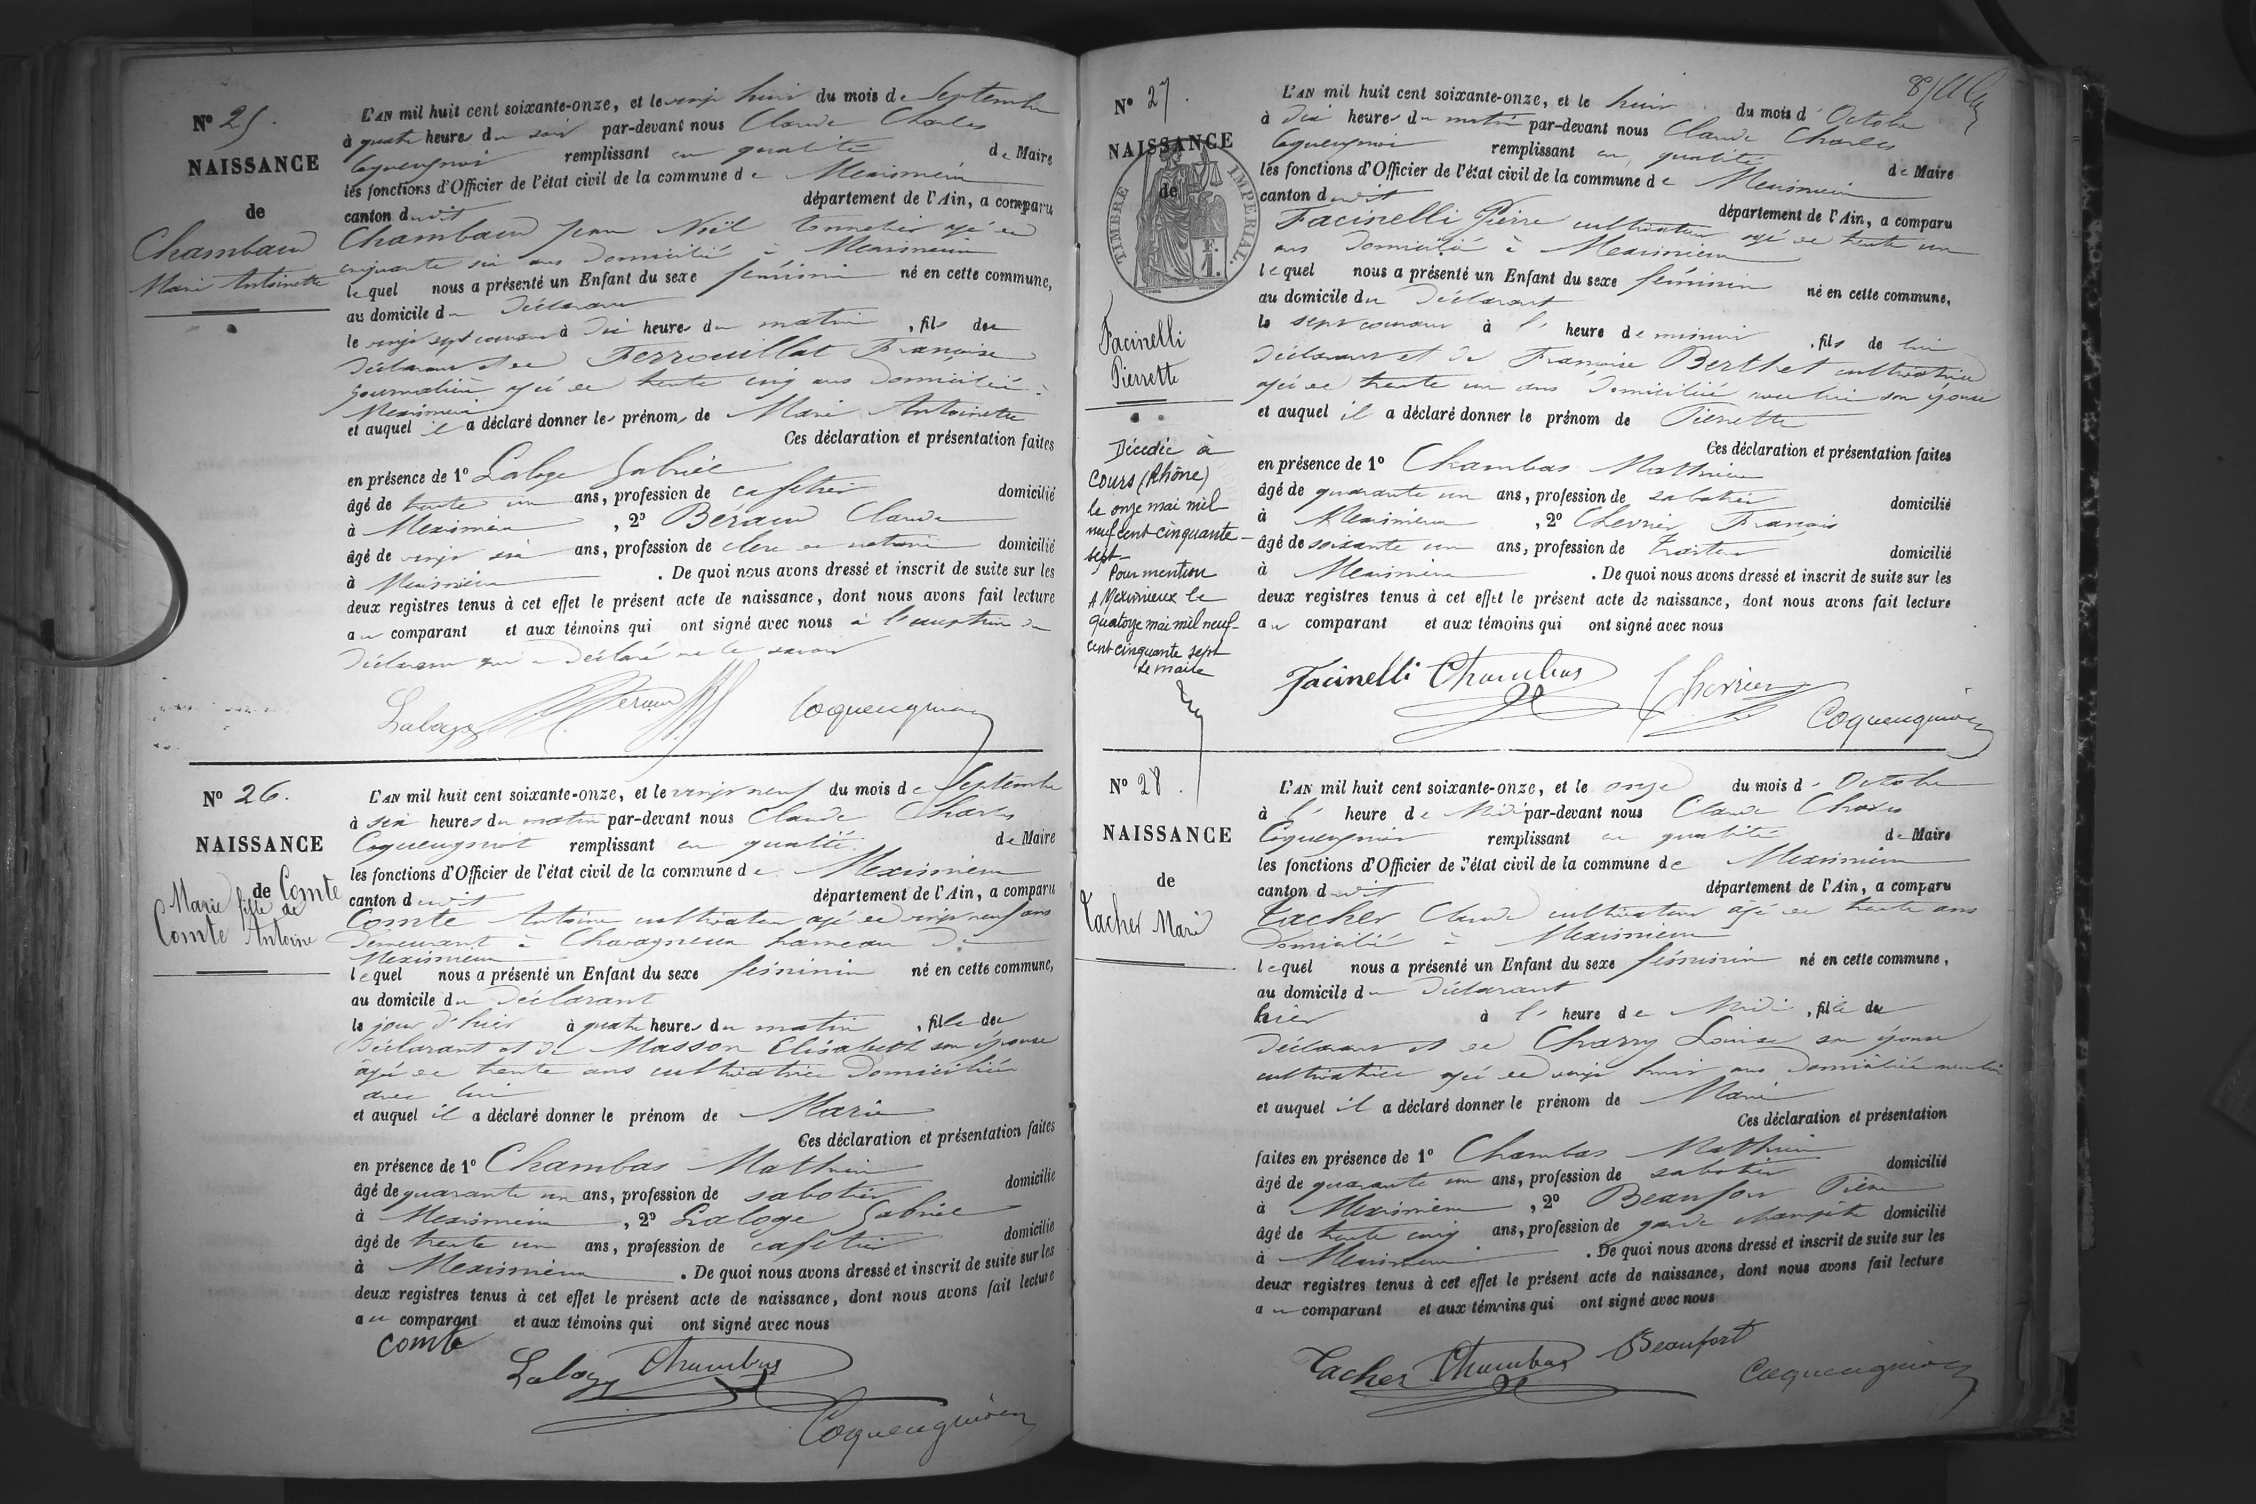 N° 25.
NAISSANCE
de
Chambaud
Marie Antoinette
L'AN mil huit cent soixante-onze, et le vingt huit du mois de Septembre
à quatre heures du soir par-devant nous Claude Charles
remplissant en qualité de Maire
les fonctions d'Officier de l'état civil de la commune de Meximieux
canton dudit département de l'Ain, a comparu
Chambaud Jean Noël tonnelier âgé de
cinquante six ans domicilié à Meximieux
lequel nous a présenté un Enfant du sexe féminin né en cette commune,
au domicile du déclarant
le vingt sept courant à dix heures du matin, fils de
déclarant et de Ferrouillat Françoise
journalière âgée de trente cinq ans domiciliée à
Meximieux
et auquel il a déclaré donner les prénoms de Marie Antoinette
Ces déclaration et présentation faites
en présence de 1° Laloge Gabriel
âgé de trente un ans, profession de cafetier domicilié
à Meximieux, 2° Béraud Claude
âgé de vingt six ans, profession de clerc de notaire domicilié
à Meximieux. De quoi nous avons dressé et inscrit de suite sur les
deux registres tenus à cet effet le présent acte de naissance, dont nous avons fait lecture
au comparant et aux témoins qui ont signé avec nous à l'exception du
déclarant qui a déclaré ne le savoir
Laloge Béraud
N° 26.
NAISSANCE
de Comte
Marie fille de
Comte Antoine
L'AN mil huit cent soixante-onze, et le vingt neuf du mois de Septembre
à six heures du matin par-devant nous Claude Charles
remplissant en qualité de Maire
les fonctions d'Officier de l'état civil de la commune de Meximieux
canton dudit département de l'Ain, a comparu
Comte Antoine cultivateur âgé de vingt neuf ans
demeurant à Chavagneux hameau de
Meximieux
lequel nous a présenté un Enfant du sexe féminin né en cette commune,
au domicile du déclarant
le jour d'hier à quatre heures du matin, fille de
déclarant et de Masson Elisabeth son épouse
âgée de trente ans cultivatrice domiciliée
avec lui
et auquel il a déclaré donner le prénom de Marie
Ces déclaration et présentation faites
en présence de 1° Chambas Mathieu
âgé de quarante un ans, profession de sabotier domicilié
à Meximieux, 2° Laloge Gabriel
âgé de trente un ans, profession de cafetier domicilié
à Meximieux. De quoi nous avons dressé et inscrit de suite sur les
deux registres tenus à cet effet le présent acte de naissance, dont nous avons fait lecture
au comparant et aux témoins qui ont signé avec nous
Comte
Laloge Chambas
N° 27.
NAISSANCE
de
TIMBRE IMPÉRIAL.
Facinelli
Pierrette
Décédée à
Cours (Rhône)
le onze mai mil
neuf cent cinquante-
sept
Pour mention
A Meximieux le
quatorze mai mil neuf-
cent cinquante sept
Le maire
L'AN mil huit cent soixante-onze, et le huit du mois d'Octobre
à dix heures du matin par-devant nous Claude Charles
remplissant en qualité de Maire
les fonctions d'Officier de l'état civil de la commune de Meximieux
canton dudit département de l'Ain, a comparu
Facinelli Pierre cultivateur âgé de trente un
ans domicilié à Meximieux
lequel nous a présenté un Enfant du sexe féminin né en cette commune,
au domicile du déclarant
le sept courant à l'heure de minuit, fils de lui
déclarant et de Françoise Berthet cultivatrice
âgée de trente un ans domiciliée avec lui son épouse
et auquel il a déclaré donner le prénom de Pierrette
Ces déclaration et présentation faites
en présence de 1° Chambas Mathieu
âgé de quarante un ans, profession de sabotier domicilié
à Meximieux, 2° Chevrier François
âgé de soixante un ans, profession de domicilié
à Meximieux. De quoi nous avons dressé et inscrit de suite sur les
deux registres tenus à cet effet le présent acte de naissance, dont nous avons fait lecture
au comparant et aux témoins qui ont signé avec nous
Facinelli Chambas Chevrier
N° 28.
NAISSANCE
de
Tacher Marie
L'AN mil huit cent soixante-onze, et le onze du mois d'Octobre
à l'heure de Midi par-devant nous Claude Charles
remplissant en qualité de Maire
les fonctions d'Officier de l'état civil de la commune de Meximieux
canton dudit département de l'Ain, a comparu
Tacher Claude cultivateur âgé de trente ans
domicilié à Meximieux
lequel nous a présenté un Enfant du sexe féminin né en cette commune,
au domicile du déclarant
hier à l'heure de Midi, fille de
déclarant et de Charry Louise son épouse
cultivatrice âgée de vingt huit ans domiciliée avec lui
et auquel il a déclaré donner le prénom de Marie
Ces déclaration et présentation
faites en présence de 1° Chambas Mathieu
âgé de quarante un ans, profession de sabotier domicilié
à Meximieux, 2° Beaufort Pierre
âgé de trente cinq ans, profession de garde champêtre domicilié
à Meximieux. De quoi nous avons dressé et inscrit de suite sur les
deux registres tenus à cet effet le présent acte de naissance, dont nous avons fait lecture
au comparant et aux témoins qui ont signé avec nous
Tacher Chambas Beaufort